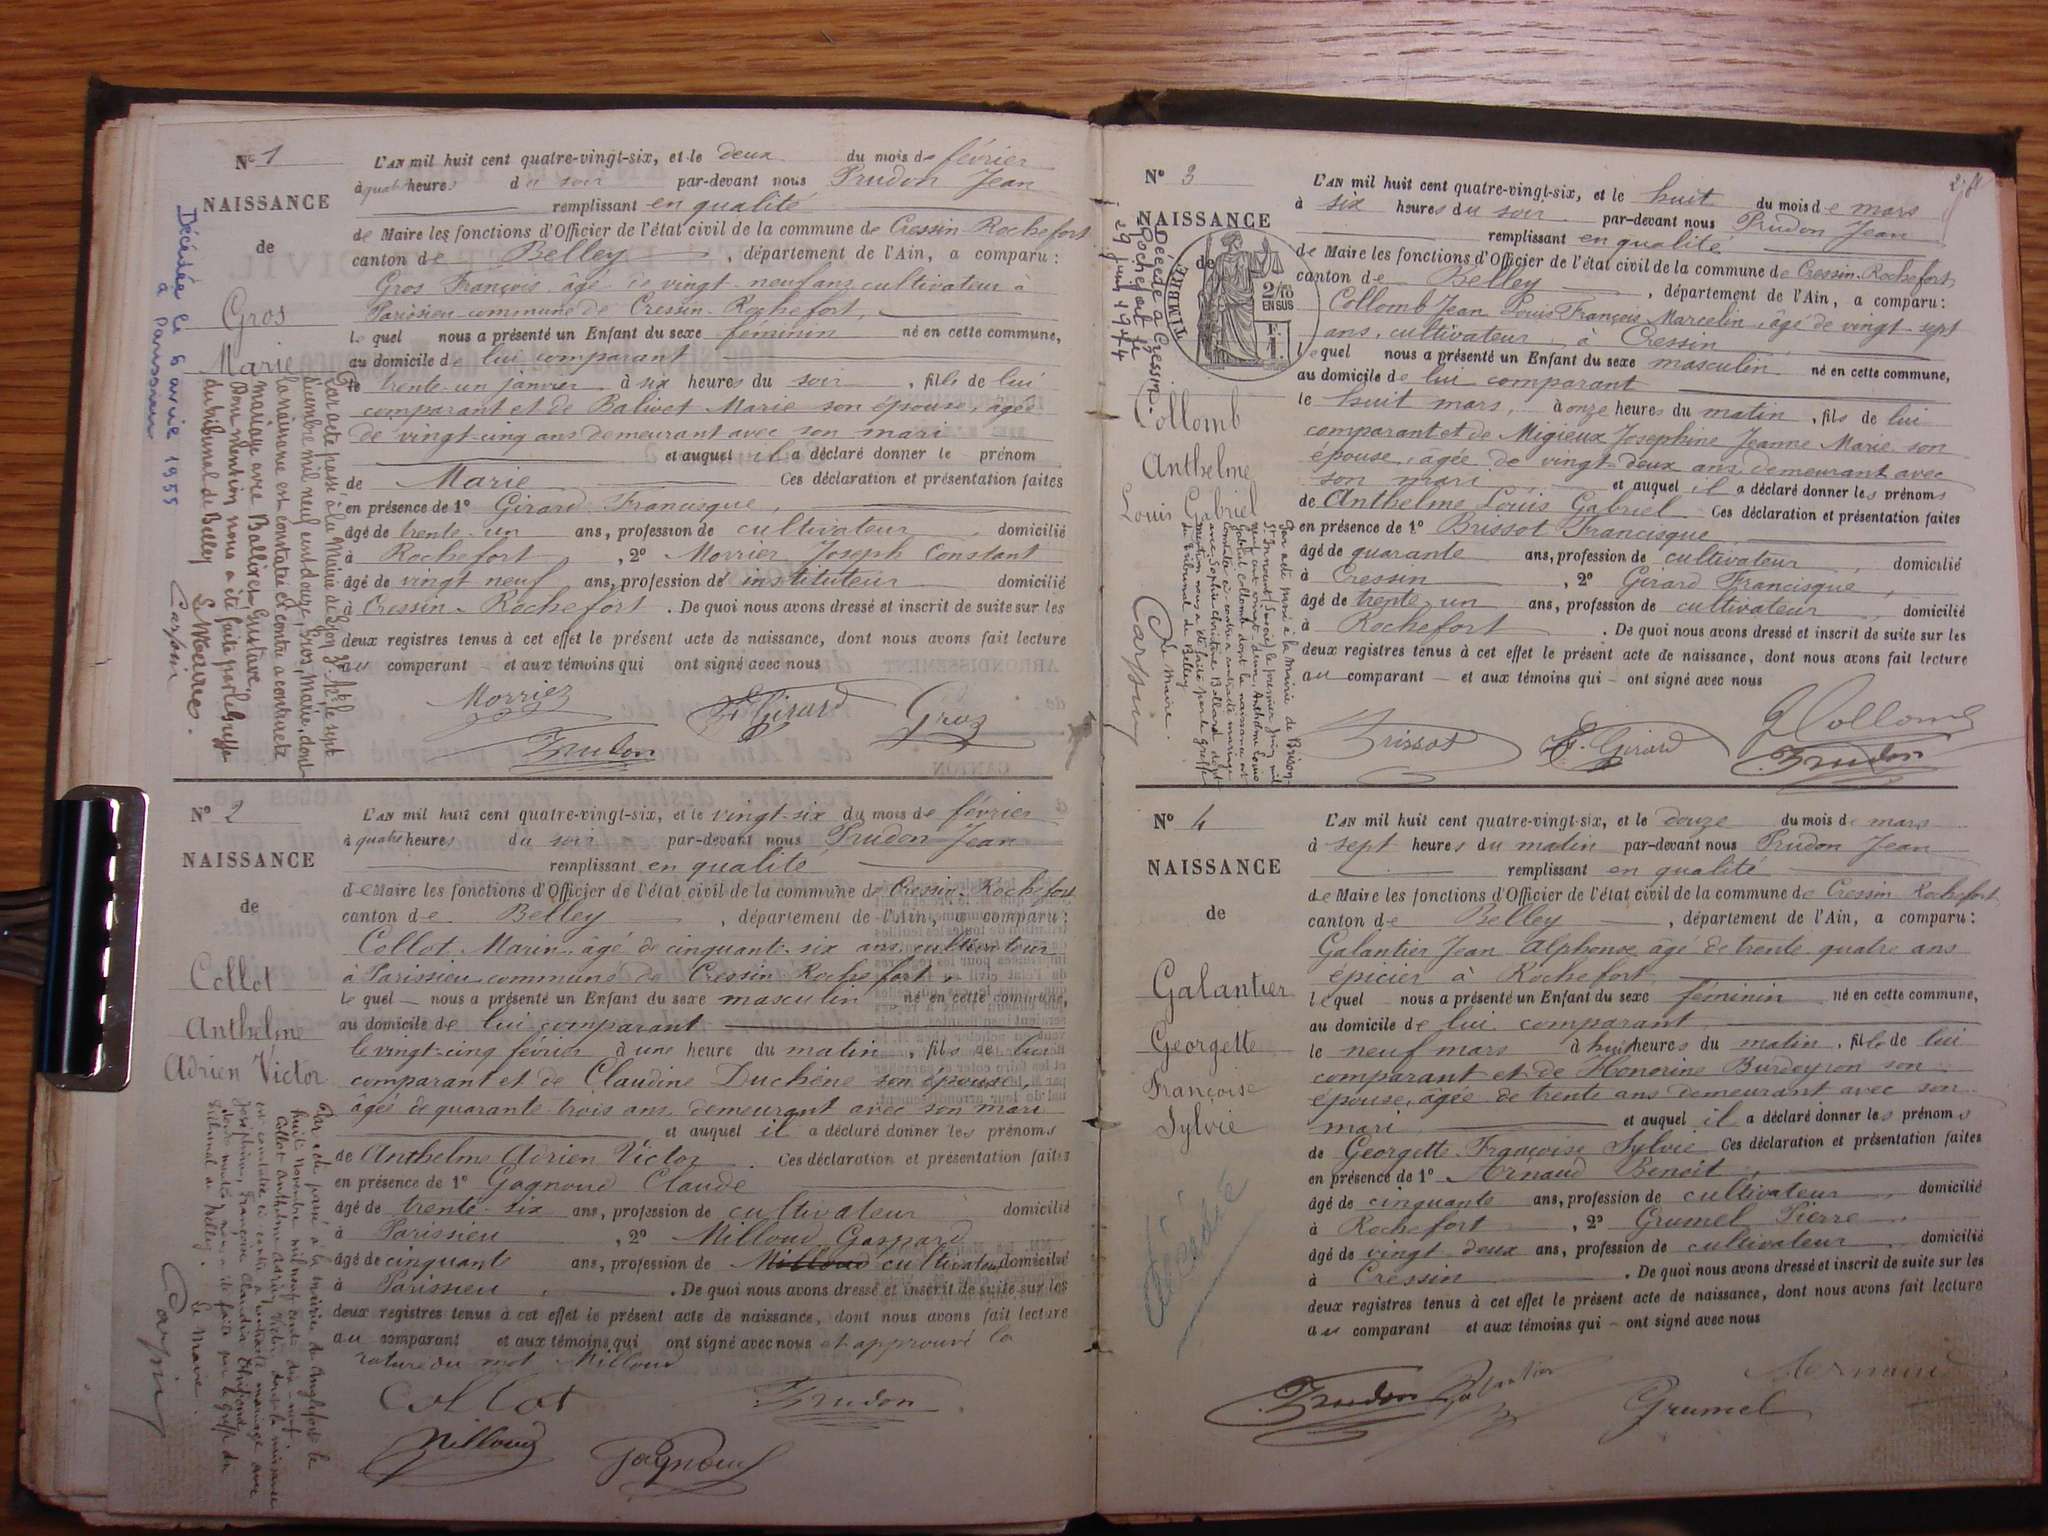 N° 1
NAISSANCE
de
Gros
Marie
L'AN mil huit cent quatre-vingt-six, et le deux du mois de février
à quatre heures du soir par-devant nous Prudon Jean
remplissant en qualité
de Maire les fonctions d'Officier de l'état civil de la commune de Cressin Rochefort
canton de Belley, département de l'Ain, a comparu :
Gros François âgé de vingt neuf ans cultivateur à
Parissieu commune de Cressin-Rochefort,
lequel nous a présenté un Enfant du sexe féminin né en cette commune,
au domicile de lui comparant
le trente-un janvier à six heures du soir, fille de lui
comparant et de Balivet Marie son épouse, âgée
de vingt-cinq ans demeurant avec son mari
et auquel il a déclaré donner le prénom
de Marie Ces déclaration et présentation faites
en présence de 1° Girard Francisque,
âgé de trente-un ans, profession de cultivateur, domicilié
à Rochefort, 2° Morrier Joseph Constant
âgé de vingt neuf ans, profession de instituteur domicilié
à Cressin-Rochefort. De quoi nous avons dressé et inscrit de suite sur les
deux registres tenus à cet effet le présent acte de naissance, dont nous avons fait lecture
au comparant et aux témoins qui ont signé avec nous
Morrier F Girard Gros
Prudon
Décédée le 6 avril 1955
à
Par acte passé à la Mairie de Lyon 3e Art le sept
décembre mil neuf cent douze, Gros, Marie, dont
la naissance est constatée ci-contre a contracté
mariage avec Gustave.
Dont mention nous a été faite par le greffe
du tribunal de Belley
Le Maire.
N° 2
NAISSANCE
de
Collot
Anthelme
Adrien Victor
L'AN mil huit cent quatre-vingt-six, et le vingt-six du mois de février
à quatre heures du soir par-devant nous Prudon Jean
remplissant en qualité
de Maire les fonctions d'Officier de l'état civil de la commune de Cressin-Rochefort
canton de Belley, département de l'Ain, a comparu :
Collot Marin âgé de cinquante-six ans cultivateur
à Parissieu commune de Cressin Rochefort,
lequel nous a présenté un Enfant du sexe masculin né en cette commune,
au domicile de lui comparant
le vingt-cinq février à une heure du matin, fils de lui
comparant et de Claudine Duchêne son épouse,
âgée de quarante trois ans demeurant avec son mari
et auquel il a déclaré donner les prénoms
de Anthelme Adrien Victor. Ces déclaration et présentation faites
en présence de 1° Gagnoud Claude
âgé de trente-six ans, profession de cultivateur domicilié
à Parissieu, 2° Milloud Gaspard
âgé de cinquante ans, profession de Milloud cultivateur domicilié
à Parissieu. De quoi nous avons dressé et inscrit de suite sur les
deux registres tenus à cet effet le présent acte de naissance, dont nous avons fait lecture
au comparant et aux témoins qui ont signé avec nous et approuvé la
rature du mot Milloud
Collot Prudon
Milloud Gagnoud
Par acte passé à la mairie de Anglefort le
huit novembre mil neuf cent dix-neuf
Collot Anthelme Adrien Victor dont la naissance
est constatée ci-contre a contracté mariage avec
Joséphine, Françoise Claudia
dont mention nous a été faite par le Greffe du
Tribunal de Belley.
Le Maire.
N° 3
2
NAISSANCE
de
TIMBRE
2/10
EN SUS
Collomb
Anthelme
Louis Gabriel
L'AN mil huit cent quatre-vingt-six, et le huit du mois de mars
à six heures du soir par-devant nous Prudon Jean
remplissant en qualité
de Maire les fonctions d'Officier de l'état civil de la commune de Cressin-Rochefort
canton de Belley, département de l'Ain, a comparu :
Collomb Jean Louis François Marcelin, âgé de vingt-sept
ans, cultivateur à Cressin
lequel nous a présenté un Enfant du sexe masculin né en cette commune,
au domicile de lui comparant
le huit mars, à onze heures du matin, fils de lui
comparant et de Migieux Josephine Jeanne Marie son
épouse, âgée de vingt-deux ans demeurant avec
son mari et auquel il a déclaré donner les prénoms
de Anthelme Louis Gabriel Ces déclaration et présentation faites
en présence de 1° Brissot Francisque
âgé de quarante ans, profession de cultivateur, domicilié
à Cressin, 2° Girard Francisque,
âgé de trente-un ans, profession de cultivateur, domicilié
à Rochefort. De quoi nous avons dressé et inscrit de suite sur les
deux registres tenus à cet effet le présent acte de naissance, dont nous avons fait lecture
au comparant et aux témoins qui ont signé avec nous
Brissot F. Girard Collomb
Prudon
Décédé à Cressin-
Rochefort le
29 juin 1974
Par acte passé à la mairie de
le premier juin mil
neuf cent vingt-un, Anthelme Louis
Gabriel Collomb dont la naissance est
constatée ci-contre a contracté mariage
avec Sophie dont
mention nous a été faite par le greffe
du Tribunal de Belley
Le Maire.
N° 4
NAISSANCE
de
Galantier
Georgette
Françoise
Sylvie
Décédée
L'AN mil huit cent quatre-vingt-six, et le douze du mois de mars
à sept heures du matin par-devant nous Prudon Jean
remplissant en qualité
de Maire les fonctions d'Officier de l'état civil de la commune de Cressin Rochefort
canton de Belley, département de l'Ain, a comparu :
Galantier Jean Alphonse âgé de trente quatre ans
épicier à Rochefort
lequel nous a présenté un Enfant du sexe féminin né en cette commune,
au domicile de lui comparant
le neuf mars à huit heures du matin, fille de lui
comparant et de Honorine Burdeyron son
épouse, âgée de trente ans demeurant avec son
mari et auquel il a déclaré donner les prénoms
de Georgette Françoise Sylvie Ces déclaration et présentation faites
en présence de 1° Arnaud Benoit,
âgé de cinquante ans, profession de cultivateur, domicilié
à Rochefort, 2° Grumel Pierre
âgé de vingt deux ans, profession de cultivateur domicilié
à Cressin. De quoi nous avons dressé et inscrit de suite sur les
deux registres tenus à cet effet le présent acte de naissance, dont nous avons fait lecture
au comparant et aux témoins qui ont signé avec nous
Prudon Galantier Arnaud
Grumel